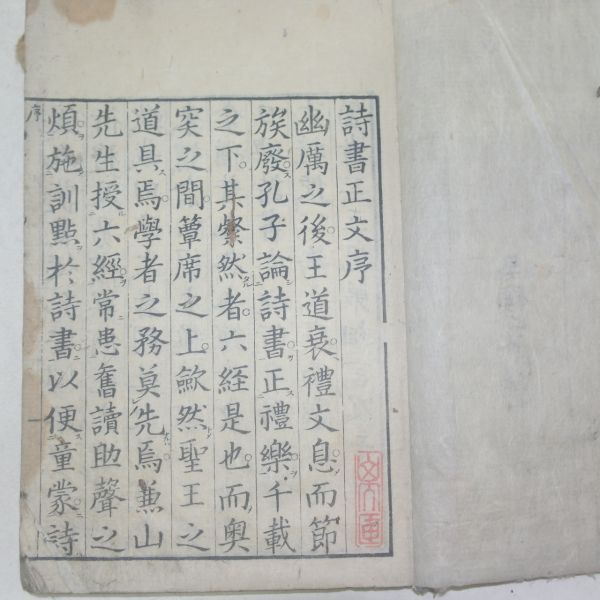 詩書正文序
幽厲之後王道衰禮文息而節
族廢孔子論詩書正禮樂千載
之下其粲然者六經是也而奥
突之間簟席之上歛然聖王之
道具焉學者之務莫先焉兼山
先生授六經常患舊讀助聲之
煩施訓點於詩書以便童蒙詩
序